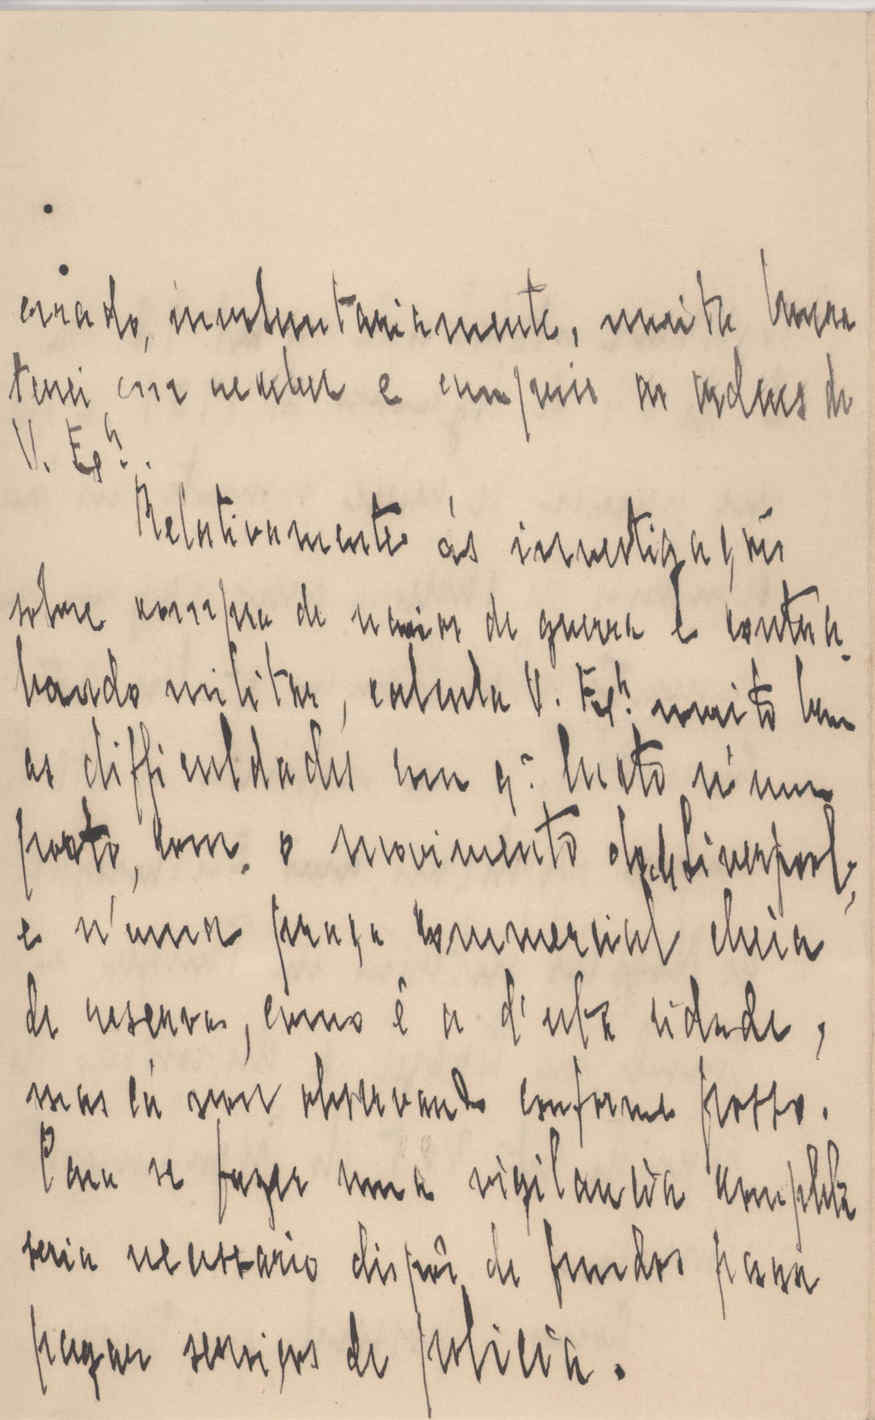 errado, involuntariamente, muita honra
terei em receber e cumprir as ordens de
V. Exª.
Relativamente ás investigações
sobre compra de navios de guerra e contra-
bando militar, calcula V. Exª muito bem
as difficuldades com q. lucto n'um
porto, com o movimento de Liverpool,
e n'uma praça commercial cheia
de reservas, como é a d'esta cidade,
mas cá vou observando conforme posso.
Para se fazer uma vigilancia completa
seria necessario dispôr de fundos para
pagar serviços de policia.